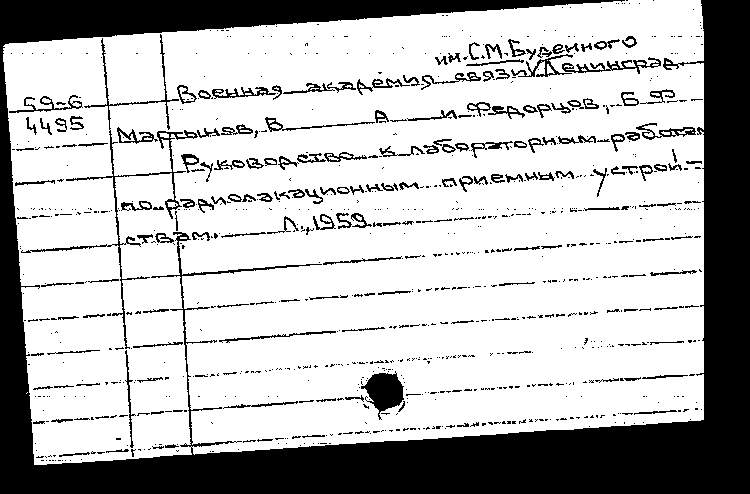 им. С.М. Буденного
Военная академия связи V Ленинград.
59-6
4495
Мартынов, В А и Федорцов, Б Ф
Руководство к лабораторным работам
по радиолокационным приемным устрой-
ствам. Л., 1959